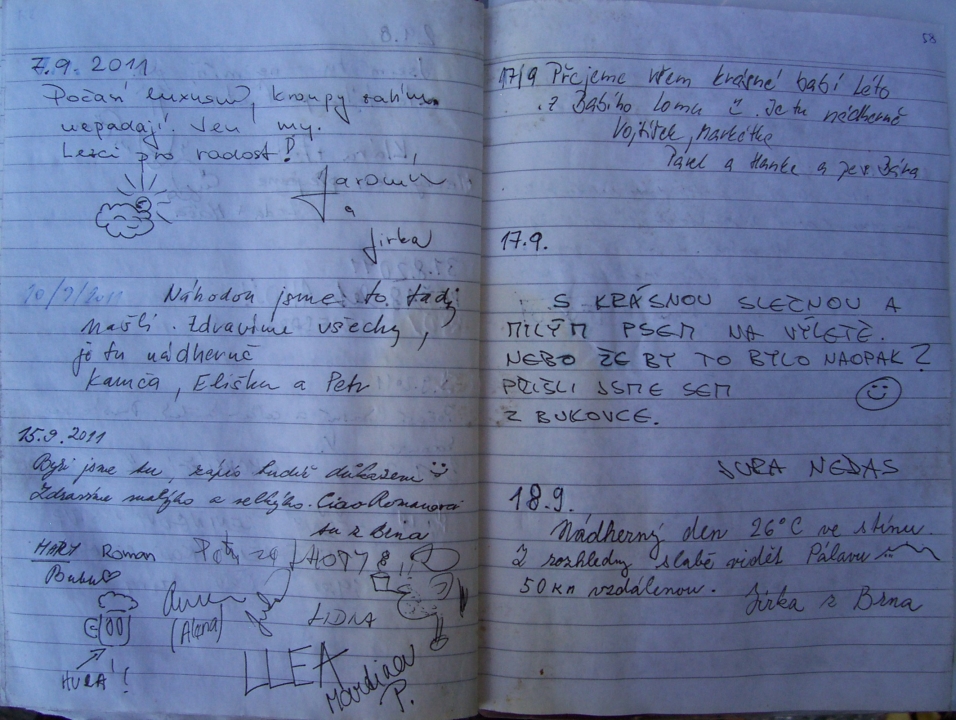 7.9. 2011
Počasí luxusní, kroupy zatím
nepadají. Jen my.
Lezci pro radost!
Jaromír
a
Jirka
10/9/2011 Náhodou jsme to tady
našli. Zdravíme všechny,
je tu nádherně
Kamča, Eliška a Petr
15.9.2011
Byli jsme tu, zápis budiž důkazem
Zdravíme malýho a velkýho. Ciao Romanovci
su z Brna
MARY Roman
LHOTY
(Alena)
LIDNA
HURÁ!
LLEA
P.
58
17/9 Přejeme všem krásné babí léto
z Babího lomu. Je tu nádherně
Vojtíšek, Markétka
Pavel a Hanka a pes Bára
17.9.
S KRÁSNOU SLEČNOU A
MILÝM PSEM NA VÝLETĚ.
NEBO ŽE BY TO BYLO NAOPAK?
PŘIŠLI JSME SEM
Z BUKOVCE.
JURA NEDAS
18.9.
Nádherný den 26°C ve stínu.
Z rozhledny slabě vidět Pálavu
50 km vzdálenou.
Jirka z Brna